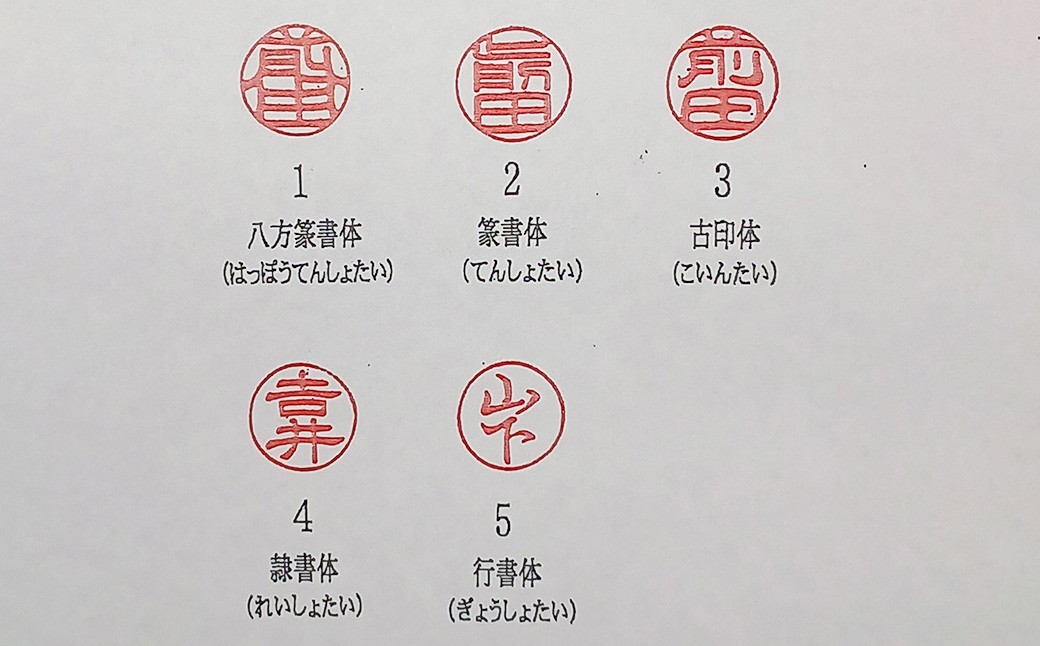 前田
前田
前田
1
2
3
八方篆書体
篆書体
古印体
(はっぽうてんしょたい)
(てんしょたい)
(こいんたい)
吉井
山下
4
5
隷書体
行書体
(れいしょたい)
(ぎょうしょたい)